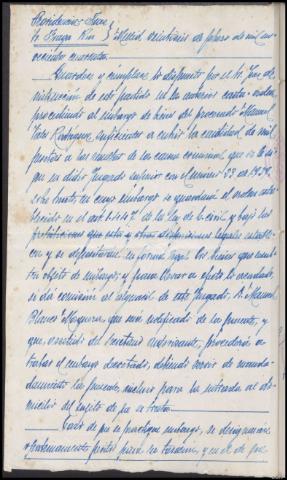 Providencia Juez
Sr. Burgos Ríu } Madrid veintiseis de febrero de mil no-
vecientos cuarenta.
Guárdese y cúmplase lo dispuesto por el Sr. Juez de
instrucción de este partido en la anterior carta-orden,
procediendo al embargo de bienes del procesado Manuel
Rodríguez suficientes a cubrir la cantidad de mil
pesetas a las resultas de la causa criminal que se le si-
gue en dicho Juzgado inferior con el número 23 de 1939,
sobre hurto, en cuyo embargo se guardará el orden estable-
cido en el artº 1.447 de la ley de E. civil y bajo las
prohibiciones que esta y otras disposiciones legales estable-
cen y se depositarán en forma legal los bienes que sean
objeto de embargo; y para llevar a efecto lo acordado,
se da comisión al alguacil de este Juzgado, D. Manuel
Blanes Noguera, que será notificado de la presente, y
que, asistido del Secretario autorizante, procederá a
trabar el embargo decretado, debiendo servir de manda-
damiento la presente, incluso para la entrada al do-
micilio del sujeto de que se trata.
Caso de que se practique embargo, se designarán
peritos para su tasación, y en el de que